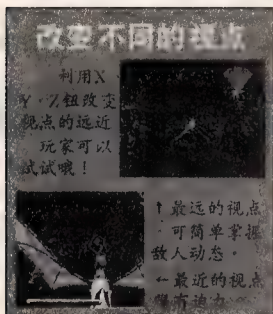 改变不同的视点
利用X·
Y·Z钮改变
视点的远近
，玩家可以
试试哦！
↑最远的视点
，可简单掌握
敌人动态。
←最近的视点
最有迫力